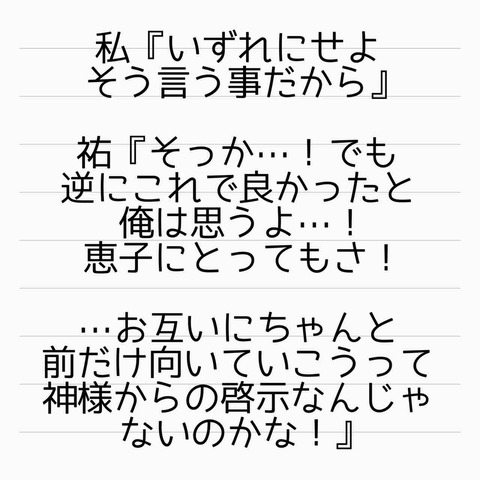 私『いずれにせよ
そう言う事だから』
祐『そっか…！でも
逆にこれで良かったと
俺は思うよ…！
恵子にとってもさ！
…お互いにちゃんと
前だけ向いていこうって
神様からの啓示なんじゃ
ないのかな！』